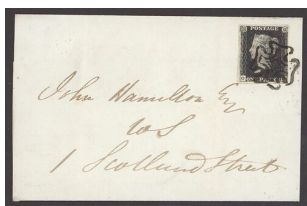 POSTAGE
John Hamilton Esq
WS
1 Scotland Street